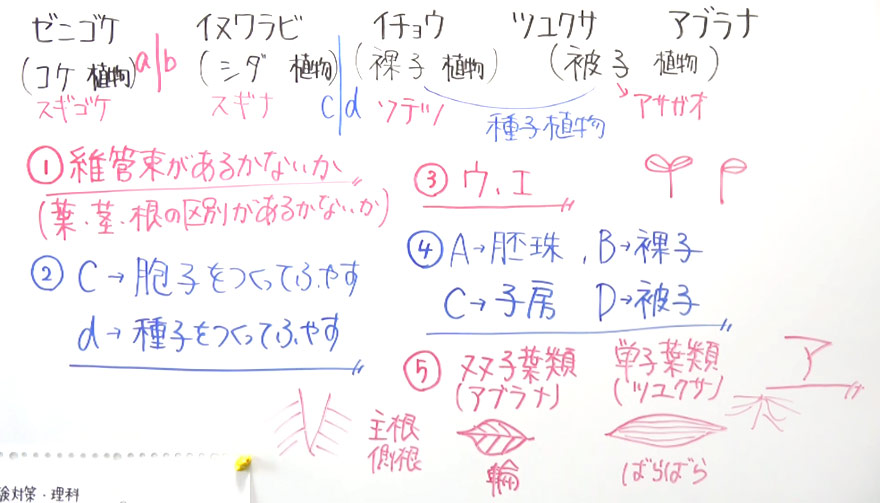 ゼニゴケ イヌワラビ イチョウ ツユクサ アブラナ
(コケ植物) a|b (シダ植物) c|d (裸子植物) (被子植物)
スギゴケ スギナ ソテツ 種子植物 アサガオ
① 維管束があるかないか
(葉・茎・根の区別があるかないか)
② C→胞子をつくってふやす
d→種子をつくってふやす
③ ウ、エ
④ A→胚珠、B→裸子
C→子房 D→被子
⑤ 双子葉類 単子葉類 ア
(アブラナ) (ツユクサ)
主根
側根
輪 ばらばら
験対策・理科